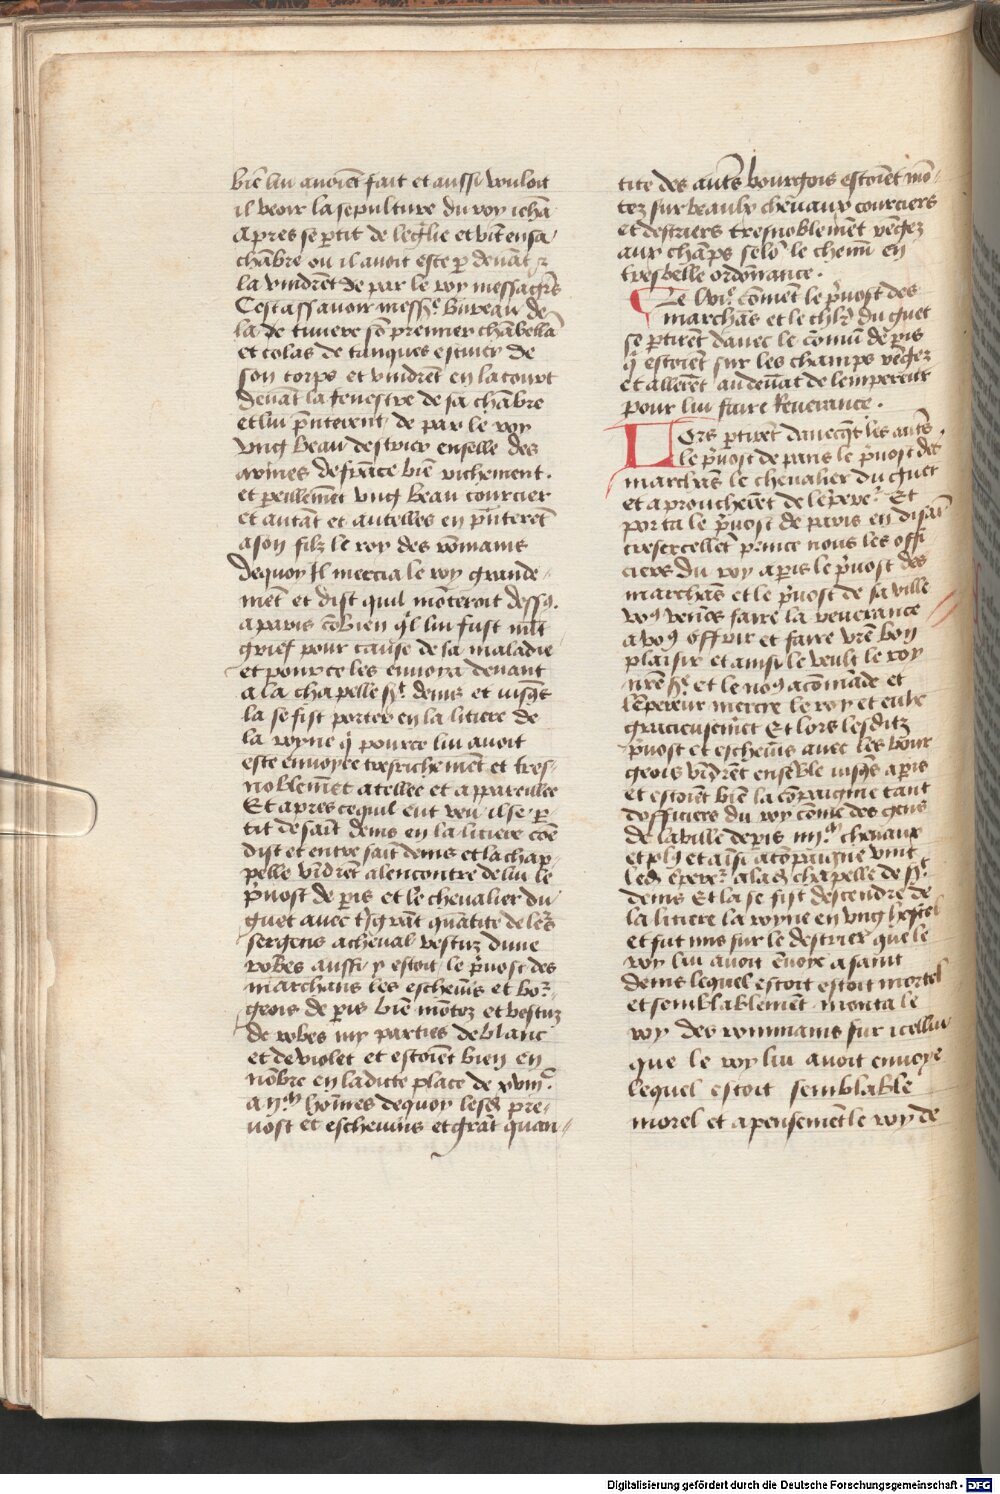 biē lui avoiēt fait et aussi vouloit
il veoir la sepulture du roy iehā
apres se ptit de leglie et vīt en sa
chābre ou il avoit este p devāt z
la vindrēt de par le roy messagrs
Cestassavoir messre bureau de
la de riviere sō premier chābellā
et colas de tanques escuier de
son corps et vindrēt en la court
devāt la fenestre de sa chābre
et lui pnterent de par le roy
vng beau destrier enselle des
armes de frāce biē richement.
et peillemēt vng beau courcier
et autāt et autelles en pnterēt
a son filz le roy des rōmains
dequoy Il mercia le roy grande-
mēt et dist quil mōteroit dessꝯ.
a paris cōbien ql lui fust mlt
grief pour cause de sa maladie
et pour ce les envoya devant
a la chapelle st denis et iusqs
la se fist porter en la litiere de
la royne q pource lui avoit
este envoyee tresrichemēt et tres-
noblemēt atellee et appareillee
Et apres ce quil eut veu il se p
tit de saīt denis en la litiere cōe
dist et entre saīt denis et la chap-
pelle vīdrēt alencontre de lui le
pvost de pis et le chevalier du
guet avec tsgrāt quātite de lers
sergens a cheval vestuz dune
robes aussi y estoit le pvost des
marchans les eschevīs et bor-
geois de pis biē mōtez et vestuz
de robes my parties de blanc
et de violet et estoiēt bien en
nōbre en ladicte place de xviiic
a iim hōmes dequoy lesd pre-
vost et eschevins et grāt quan-
tite des autrs bourgois estoiēt mō-
tez sur beaulx chevaux courciers
et destriers tresnoblemēt rēgez
aux chāps selō le chemī en
tresbelle ordōnance.
Le lviie cōmēt le pvost des
marchās et le chlr du guet
se ptirēt davec le cōmū de pis
q estoiēt sur les champs rēgez
et allerēt audevāt de lempereur
pour lui faire Reverance.
Lors ptirēt davecqt les autrs
le pvost de paris le pvost des
marchās le chevalier du guet
et aproucherēt de lēpere. Et
porta le pvost de paris en disāt
tresexcellēt prince nous les offi
ciers du roy a paris le pvost des
marchās et le pvost de sa ville
voꝯ venōs faire la reverance
a voꝯ offrir et faire vrē bon
plaisir et ainsi le veult le roy
nrē sr et le noꝯ a cōmāde et
lēpereur mercie le roy et eulx
gracieusemēt Et lors lesditz
pvost et eschevīs avec les bour
geois vīdrēt ensēble iusqs a pis
et estoiēt biē la cōpaignie tant
dofficiers du roy cōme des gens
de la ville de pis iiiim chevaux
et plꝯ et aīsi acōpaigne vint
led ēpere a lad chapelle de st
denis Et la se fist descendre de
la litiere la royne en vng hostel
et fut mis sur le destrier que le
roy lui avoit ēvoye a saint
denis lequel estoit estoit mortel
et semblablement monta le
roy des rommains sur icellui
que le roy lui avoit envoye
lequel estoit semblable
morel et apensemēt le roy de
Digitalisierung gefördert durch die Deutsche Forschungsgemeinschaft - DFG